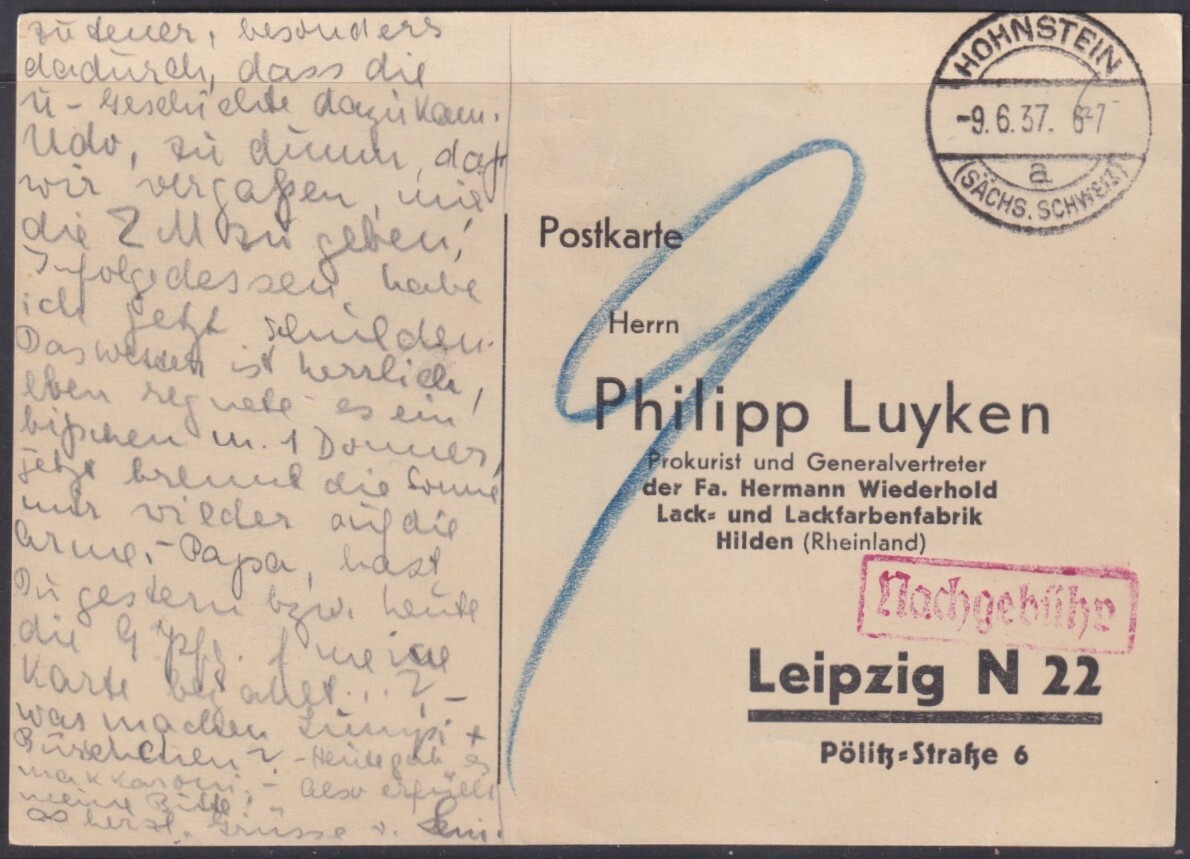 zu teuer, besonders
dadurch, dass die
U-Geschichte dazukam.
Udo, zu dumm, daß
wir vergaßen, mir
die 2 M zu geben,
Infolgedessen habe
ich jetzt Schulden.
Das Wetter ist herrlich,
eben regnete es ein
bißchen m. 1 Donner,
jetzt brennt die Sonne
mir wieder auf die
Arme.- Papa, hast
Du gestern bzw. heute
die 9 Pfg. f. meine
Karte bezahlt...? -
was machen Lumpi +
Bürschchen? - Heute gab es
Makkaroni. - Also erfüllt
meine Bitte!
herzl. Grüsse v.
HOHNSTEIN
-9.6.37. 6-7
a
(SÄCHS. SCHWEIZ)
9
Postkarte
Herrn
Philipp Luyken
Prokurist und Generalvertreter
der Fa. Hermann Wiederhold
Lack- und Lackfarbenfabrik
Hilden (Rheinland)
Nachgebühr
Leipzig N 22
Pölitz-Straße 6